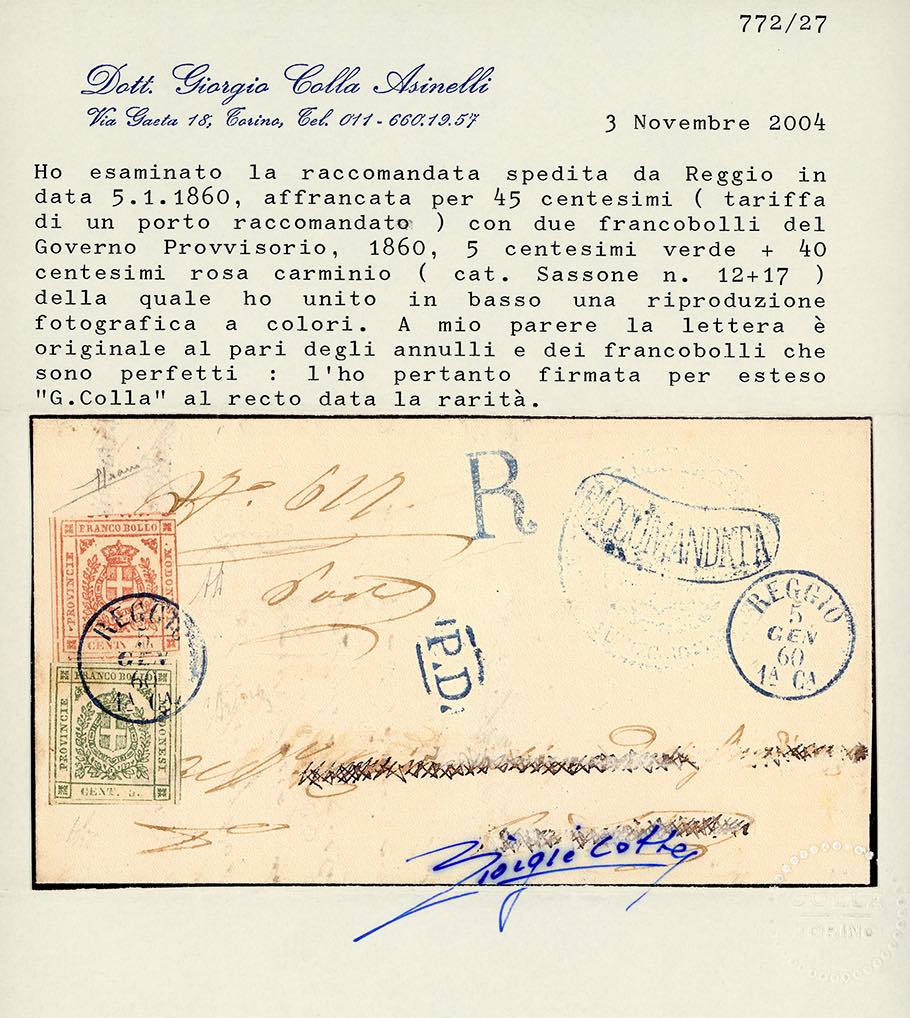 772/27
Dott. Giorgio Colla Asinelli
Via Gaeta 18, Torino, Tel. 011 - 660.19.57
3 Novembre 2004
Ho esaminato la raccomandata spedita da Reggio in
data 5.1.1860, affrancata per 45 centesimi ( tariffa
di un porto raccomandato ) con due francobolli del
Governo Provvisorio, 1860, 5 centesimi verde + 40
centesimi rosa carminio ( cat. Sassone n. 12+17 )
della quale ho unito in basso una riproduzione
fotografica a colori. A mio parere la lettera è
originale al pari degli annulli e dei francobolli che
sono perfetti : l'ho pertanto firmata per esteso
"G.Colla" al recto data la rarità.
R
RACCOMANDATA
FRANCO BOLLO
PROVINCIE
MODONESI
CENT.
REGGIO
5
GEN
60
1A CA
P.D.
REGGIO
5
GEN
60
1A CA
FRANCO BOLLO
PROVINCIE
MODONESI
CENT. 5.
Giorgio Colla
COLLA
TORINO